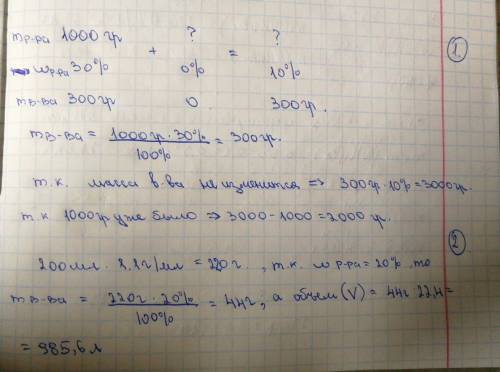 mр-ра 1000 гр + ? = ?
①
wр.ра 30% 0% 10%
mв-ва 300гр 0 300гр.
mв-ва = 1000гр · 30% / 100% = 300гр.
т.к. масса в-ва не изменится => 300гр · 10% = 3000гр.
т.к 1000гр уже было => 3000 - 1000 = 2000 гр.
②
200мл · 1,1г/мл = 220г , т.к. w р-ра = 20% , то
mв-ва = 220г · 20% / 100% = 44г, а объем (V) = 44г · 22,4 =
= 985,6 л